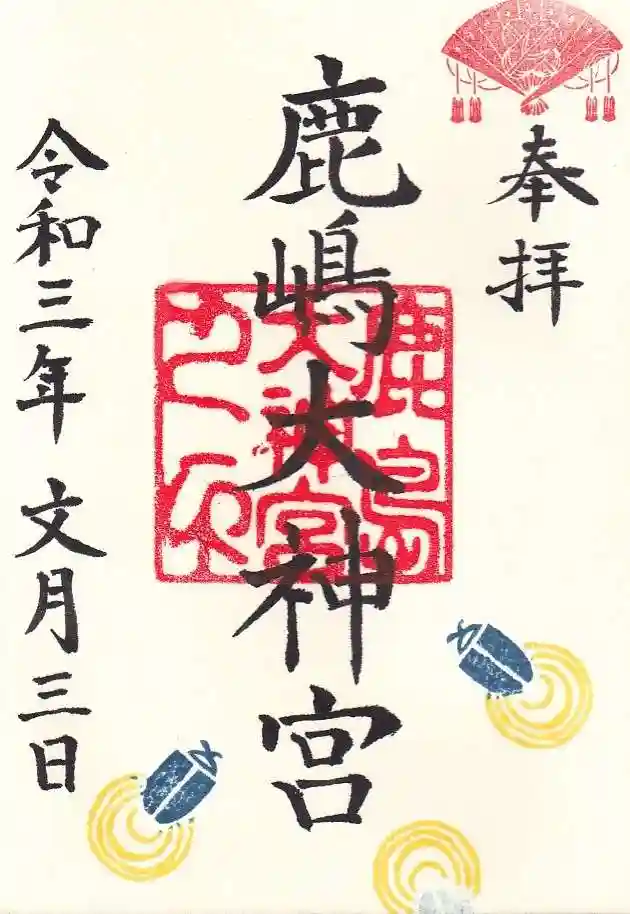 奉拝
鹿嶋大神宮
鹿島
大神宮
令和三年 文月三日